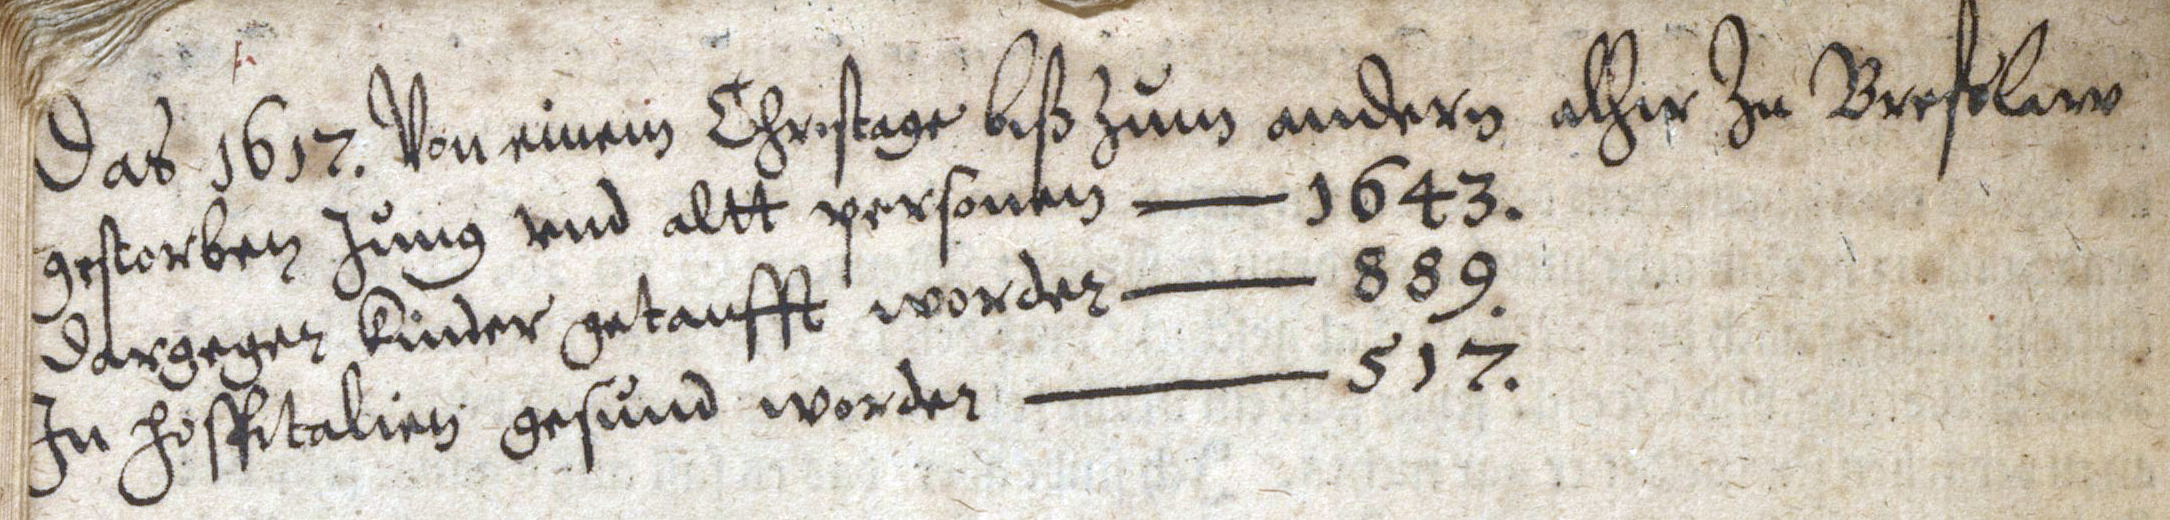 Das 1617. Von einem Christage biß zum andern alhir Zu Breßlaw
gestorben Jung vnd altt personen — 1643.
dargegen Kinder getaufft worden — 889.
In hospitalien gesund worden — 517.